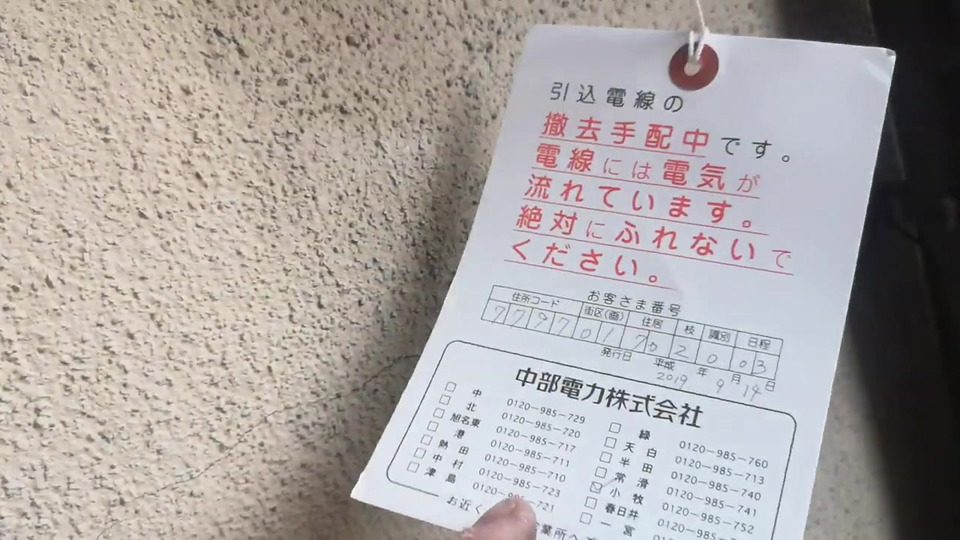 引込電線の
撤去手配中です。
電線には電気が
流れています。
絶対にふれないで
ください。
お客さま番号
住所コード 街区(画) 住居 枝 識別 日程
7797 01 70 2 0 03
発行日 平成 2019 年 9 月 14 日
中部電力株式会社
中 0120-985-729
北 0120-985-720
旭名東 0120-985-717
港 0120-985-711
熱田 0120-985-710
中村 0120-985-723
津島
緑 0120-985-760
天白 0120-985-713
半田 0120-985-740
常滑 0120-985-741
小牧 0120-985-752
春日井
一宮
お近く
営業所へ